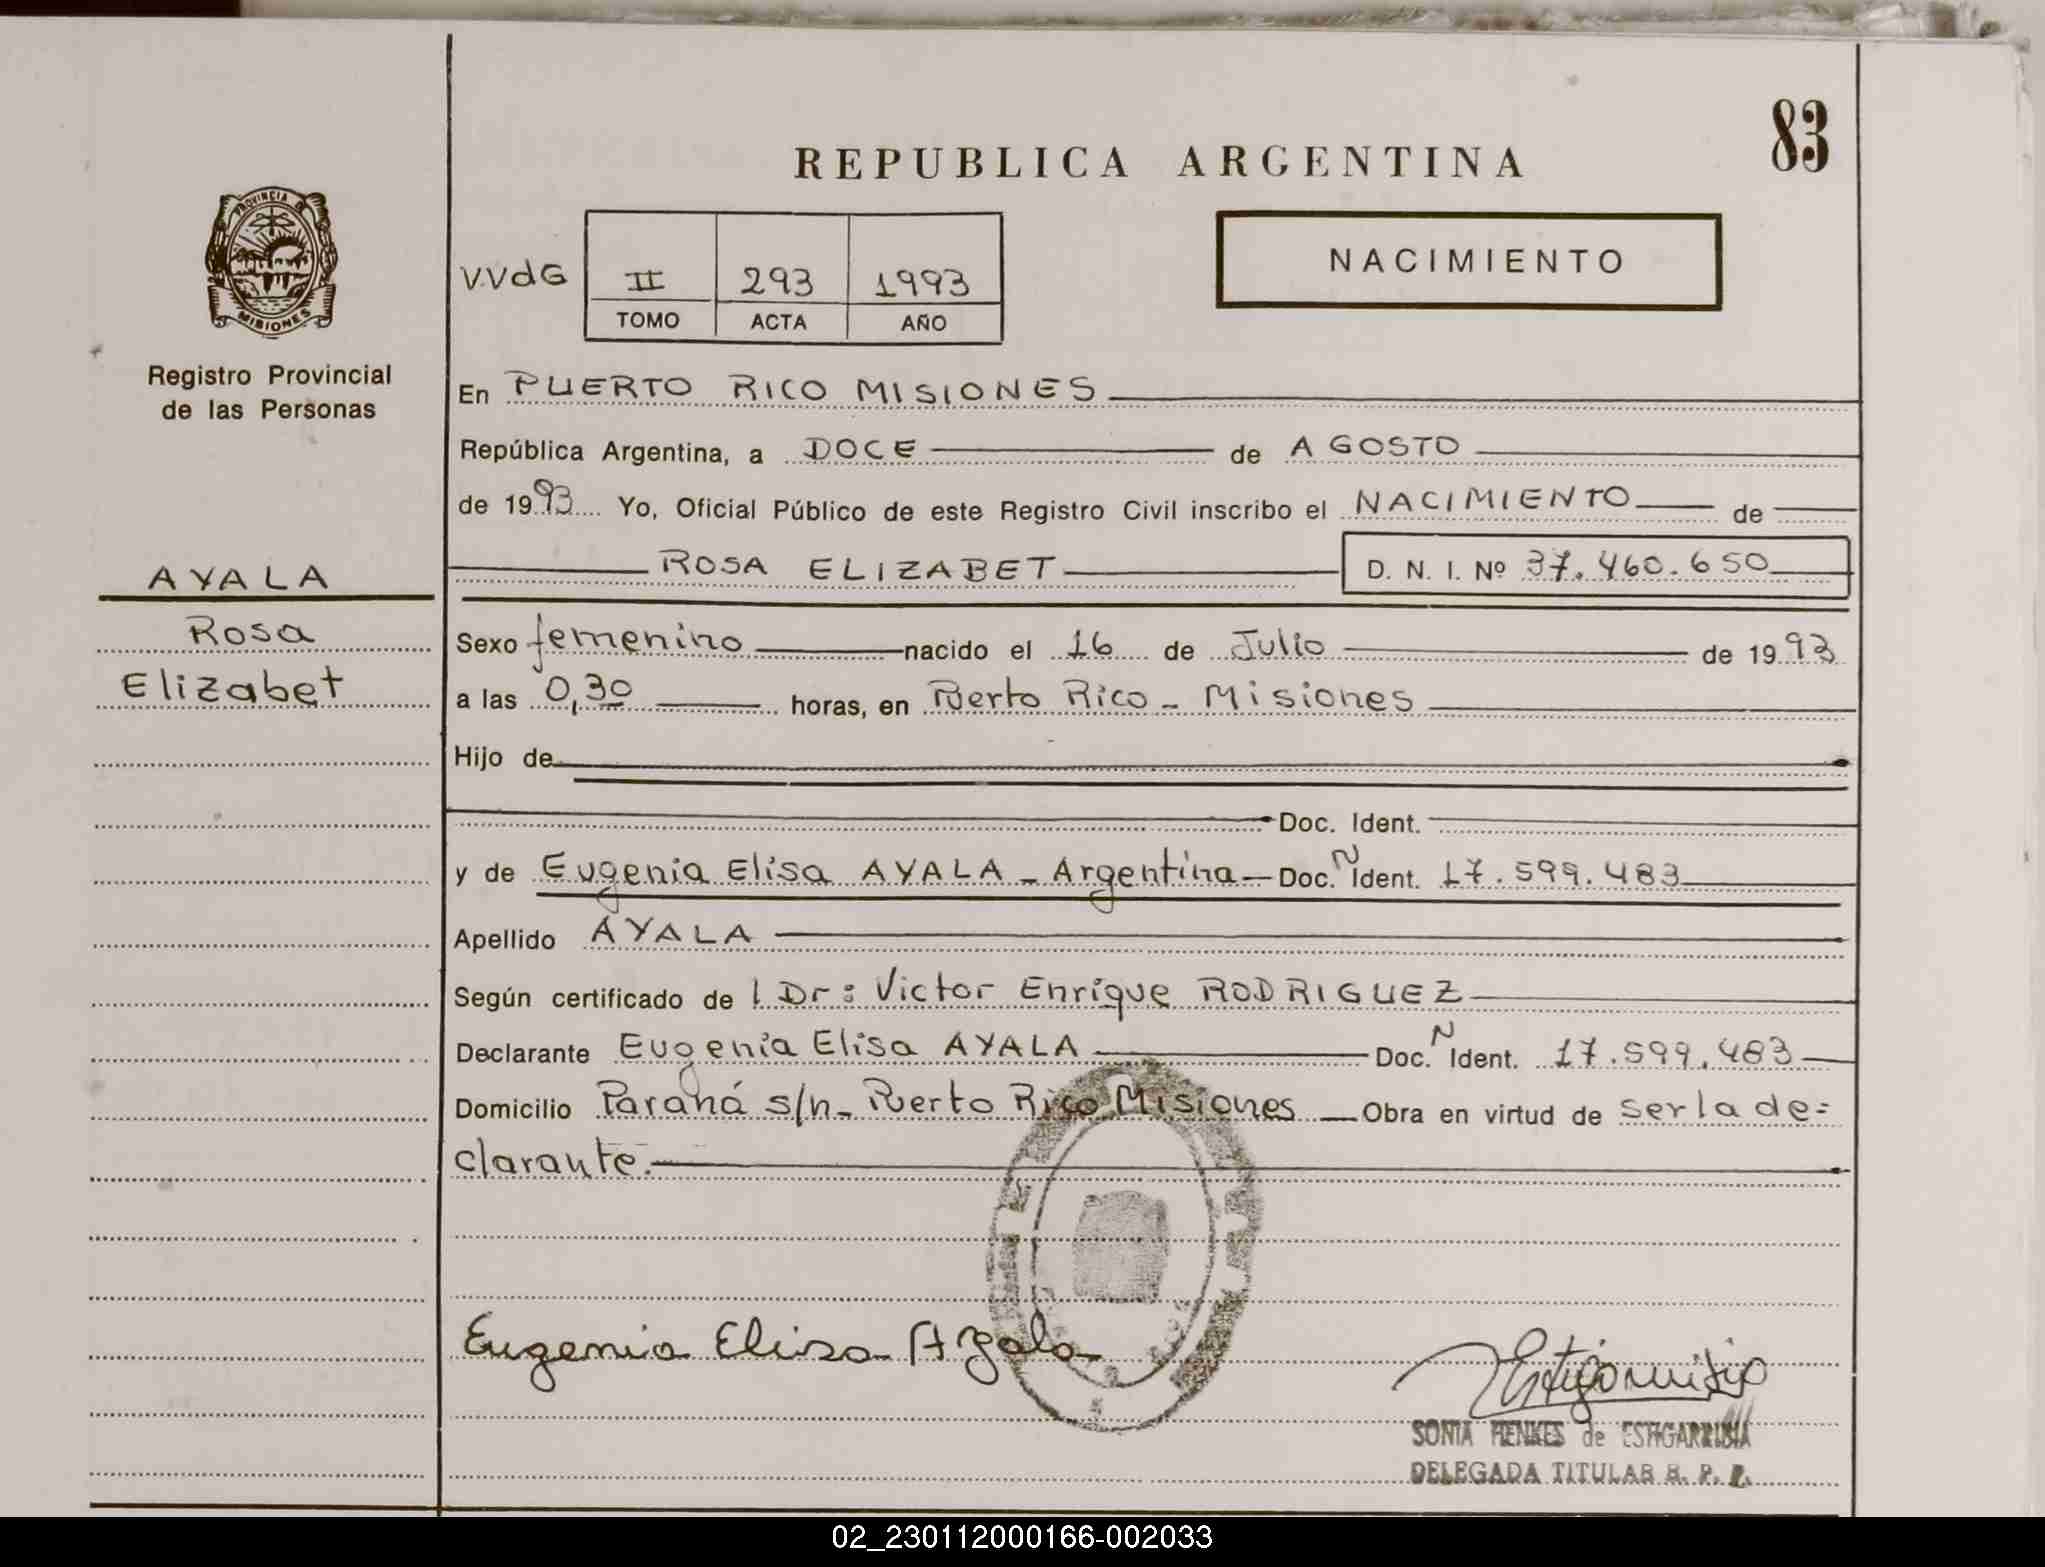 83
REPUBLICA ARGENTINA
PROVINCIA DE
MISIONES
Registro Provincial
de las Personas
V.VdG II 293 1993
TOMO ACTA AÑO
NACIMIENTO
En PUERTO RICO MISIONES
República Argentina, a DOCE de AGOSTO
de 1993 Yo, Oficial Público de este Registro Civil inscribo el NACIMIENTO de
AYALA
ROSA ELIZABET D. N. I. Nº 37.460.650
Rosa
Elizabet
Sexo femenino nacido el 16 de Julio de 1993
a las 0,30 horas, en Puerto Rico - Misiones
Hijo de
Doc. Ident.
y de Eugenia Elisa AYALA - Argentina - Doc. N Ident. 17.599.483
Apellido AYALA
Según certificado de l Dr: Victor Enrique RODRIGUEZ
Declarante Eugenia Elisa AYALA Doc. N Ident. 17.599.483
Domicilio Paraná s/n - Puerto Rico Misiones Obra en virtud de ser la de=
clarante.
Eugenia Elisa Ayala
SONIA HENKES de ESTIGARRIBIA
DELEGADA TITULAR R. P. P.
02_230112000166-002033